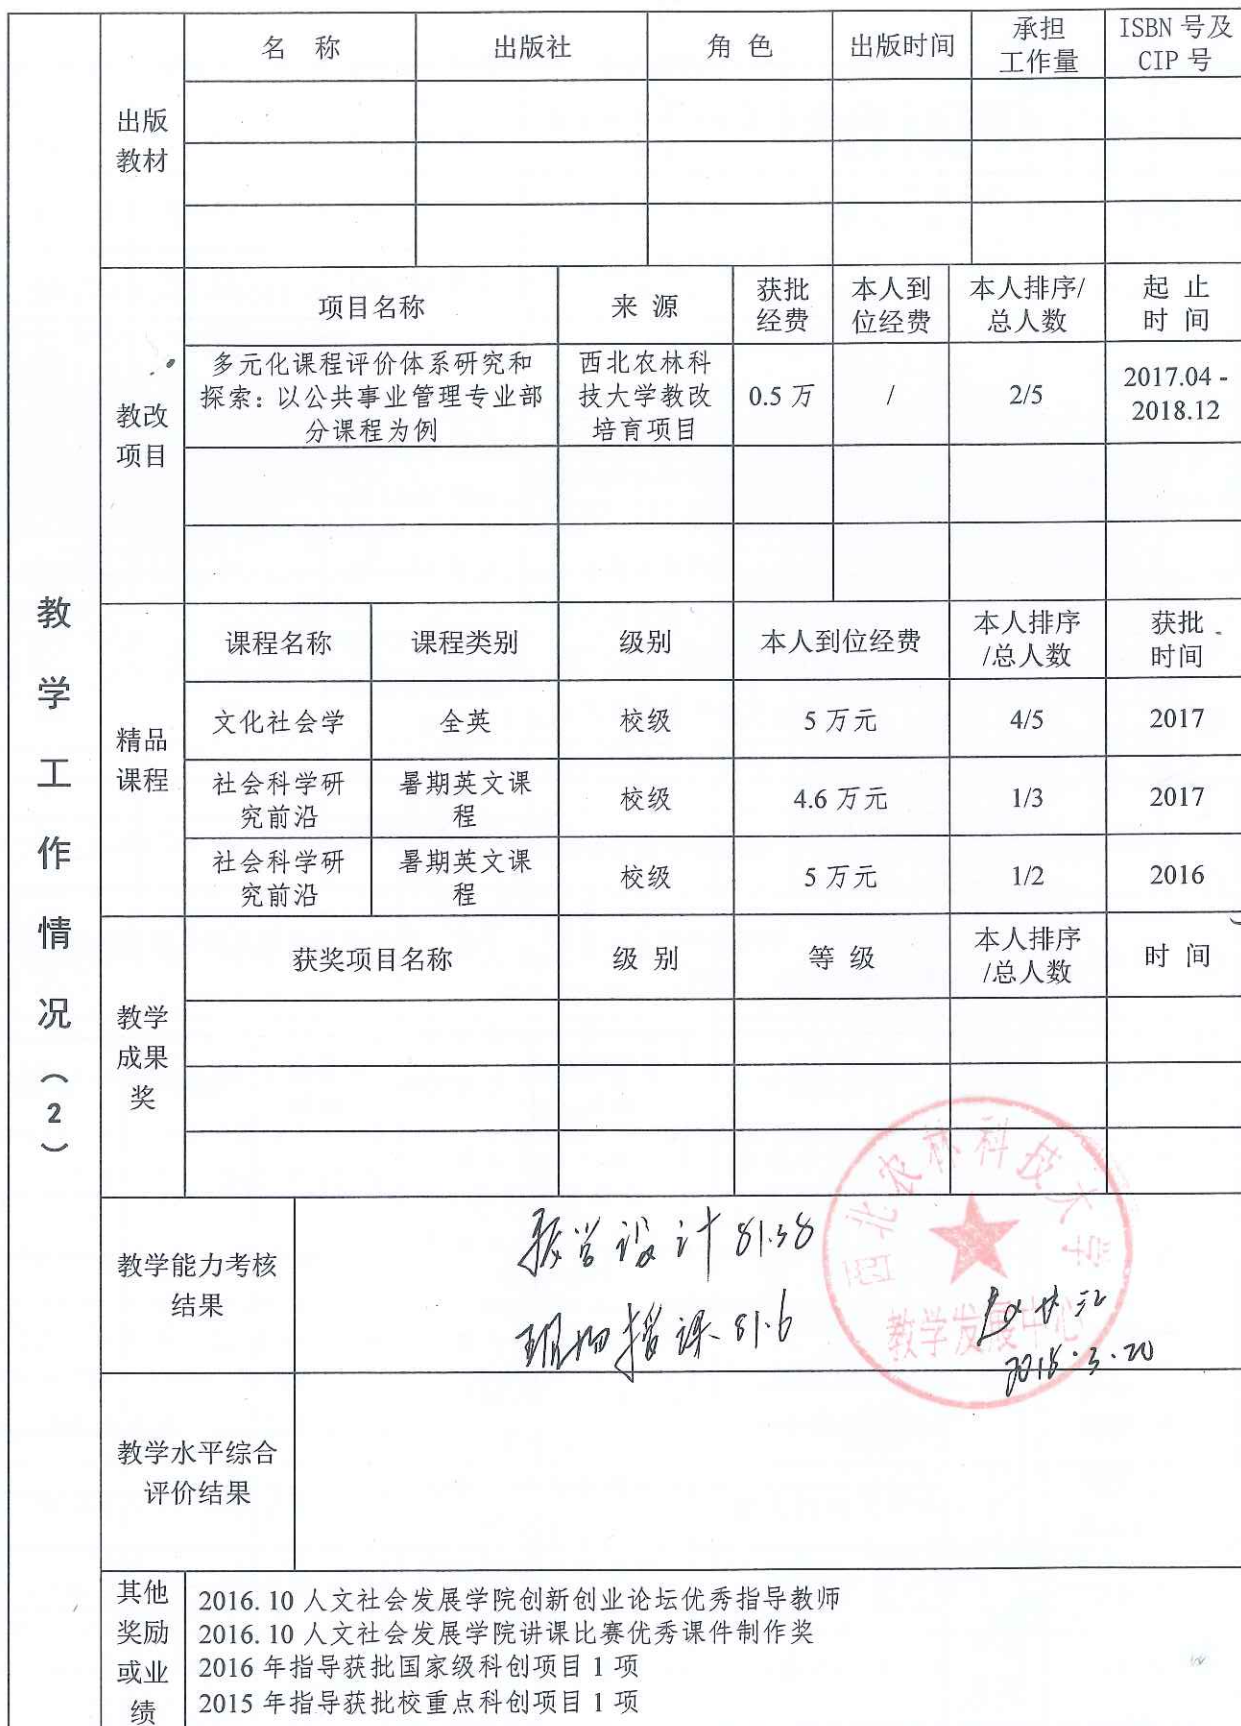 教学工作情况（2）
出版教材
名 称 出版社 角 色 出版时间 承担工作量 ISBN 号及CIP 号
教改项目
项目名称 来 源 获批经费 本人到位经费 本人排序/总人数 起 止时 间
多元化课程评价体系研究和探索：以公共事业管理专业部分课程为例 西北农林科技大学教改培育项目 0.5 万 / 2/5 2017.04 - 2018.12
精品课程
课程名称 课程类别 级别 本人到位经费 本人排序/总人数 获批时间
文化社会学 全英 校级 5 万元 4/5 2017
社会科学研究前沿 暑期英文课程 校级 4.6 万元 1/3 2017
社会科学研究前沿 暑期英文课程 校级 5 万元 1/2 2016
教学成果奖
获奖项目名称 级 别 等 级 本人排序/总人数 时 间
西北农林科技大学
教学发展中心
教学能力考核结果
教学设计 81.58
现场授课 81.6
2018.3.20
教学水平综合评价结果
其他奖励或业绩
2016.10 人文社会发展学院创新创业论坛优秀指导教师
2016.10 人文社会发展学院讲课比赛优秀课件制作奖
2016 年指导获批国家级科创项目 1 项
2015 年指导获批校重点科创项目 1 项